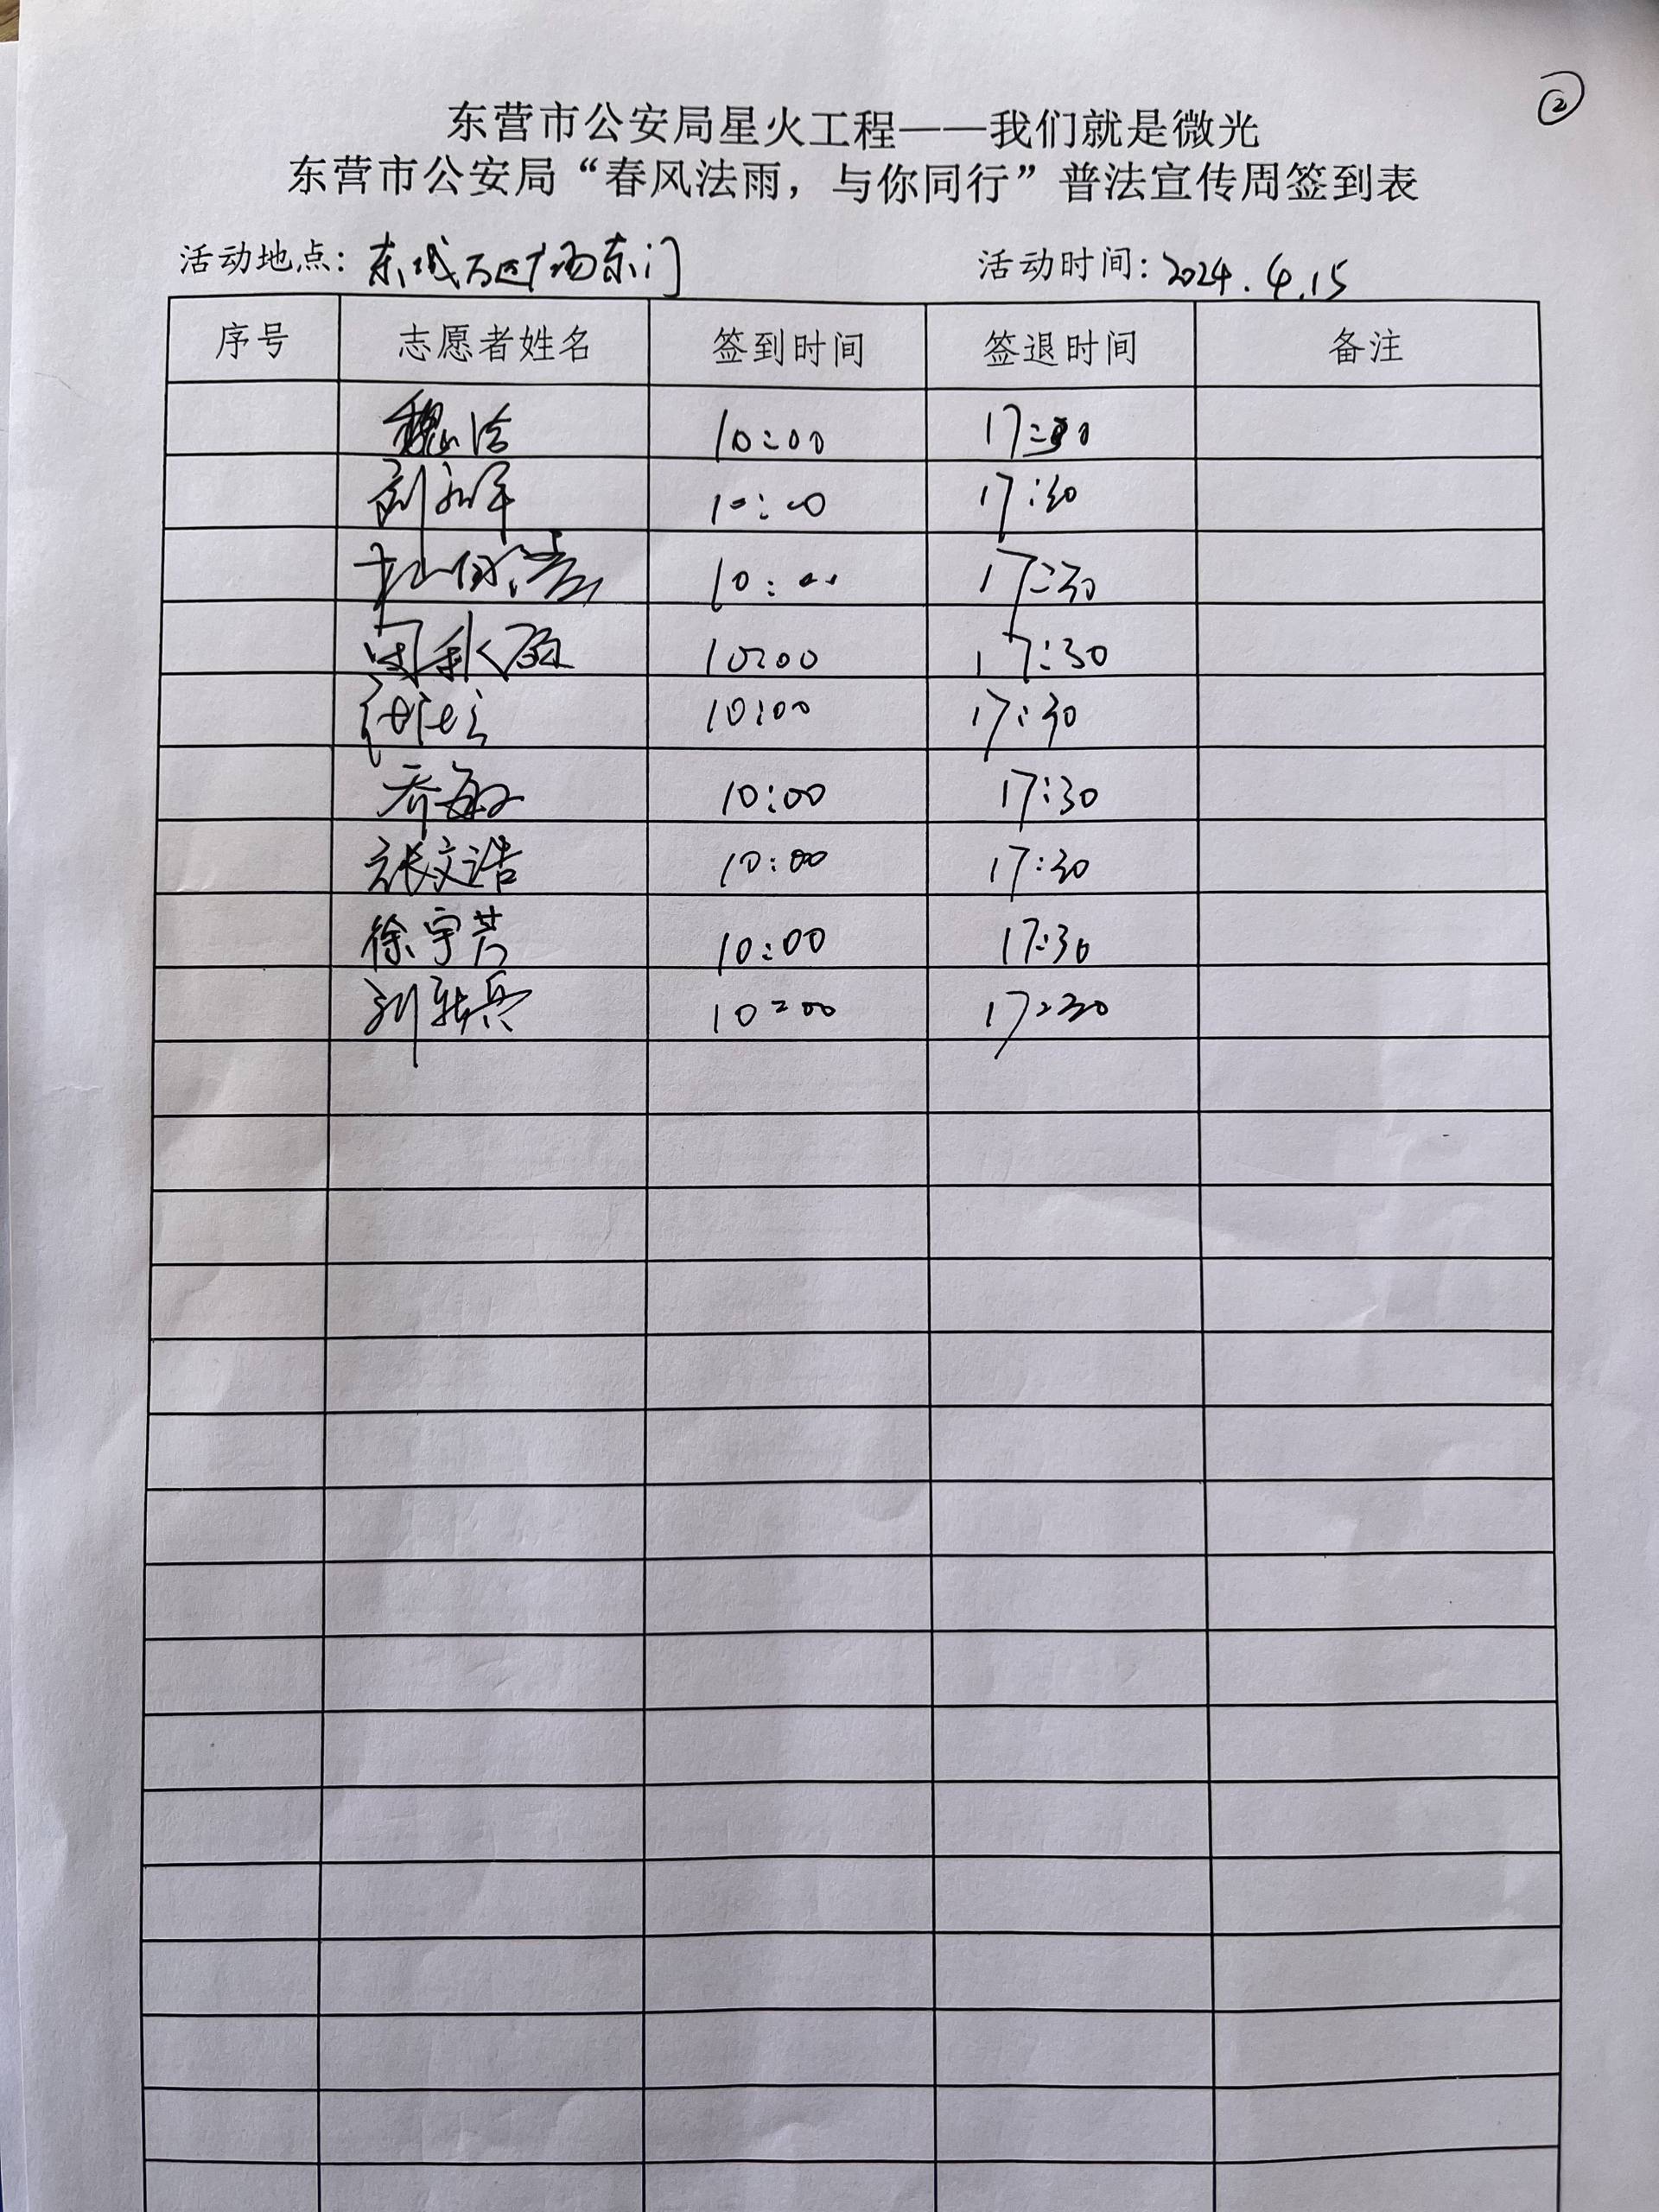 ②
东营市公安局星火工程——我们就是微光
东营市公安局“春风法雨，与你同行”普法宣传周签到表
活动地点：东城万达广场东门 活动时间：2024.4.15
序号 志愿者姓名 签到时间 签退时间 备注
魏 10:00 17:30
刘 10:00 17:30
10:00 17:30
10:00 17:30
10:00 17:30
乔敏 10:00 17:30
张文浩 10:00 17:30
徐宇芳 10:00 17:30
刘新兵 10:00 17:30